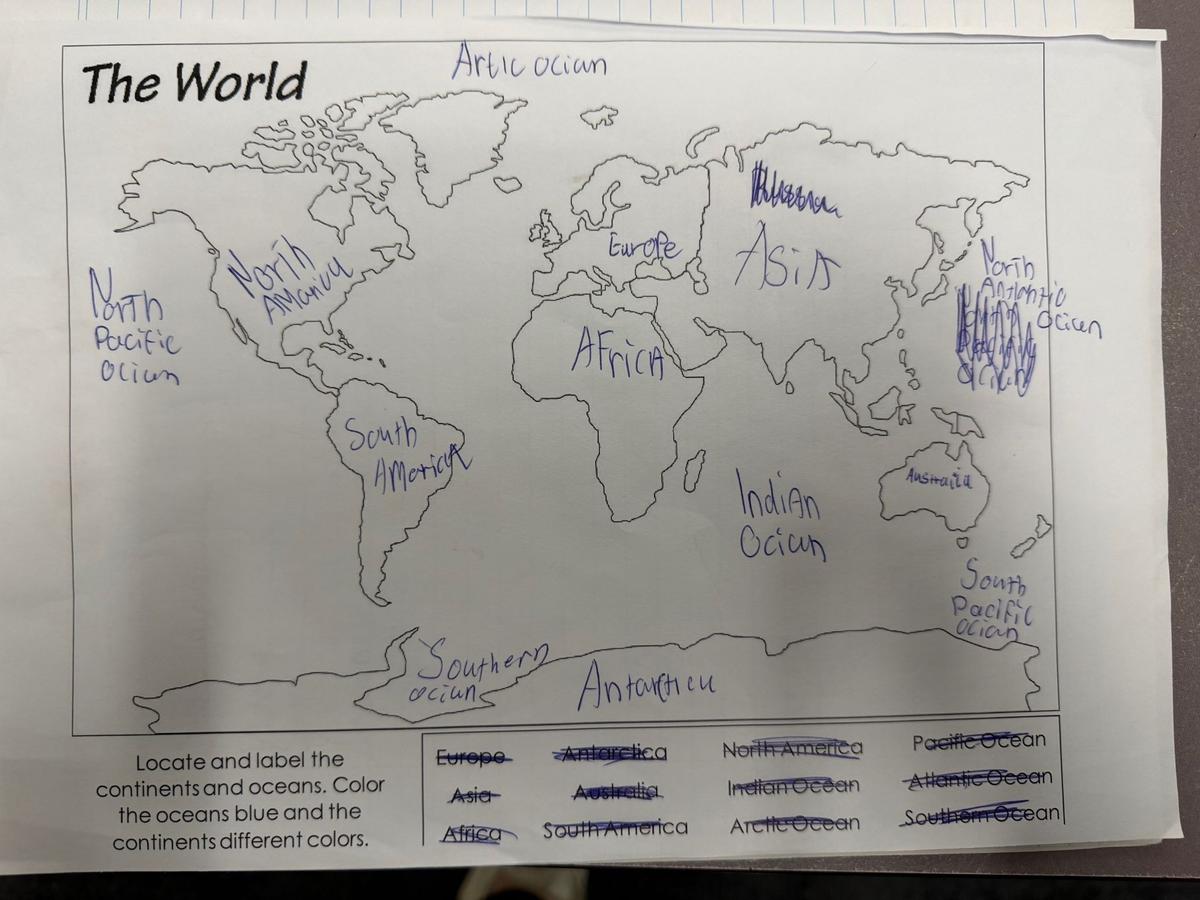 The World
Artic ocian
Europe
Asia
North
AMarica
North
Pacific
Ocian
North
Antlantic
Ocien
AFrica
South
AMerica
Indian
Ocian
Australia
South
Pacific
Ocian
Southern
ocian
Antarctica
Locate and label the
continents and oceans. Color
the oceans blue and the
continents different colors.
Europe Antarctica North America Pacific Ocean
Asia Australia Indian Ocean Atlantic Ocean
Africa South America Arctic Ocean Southern Ocean